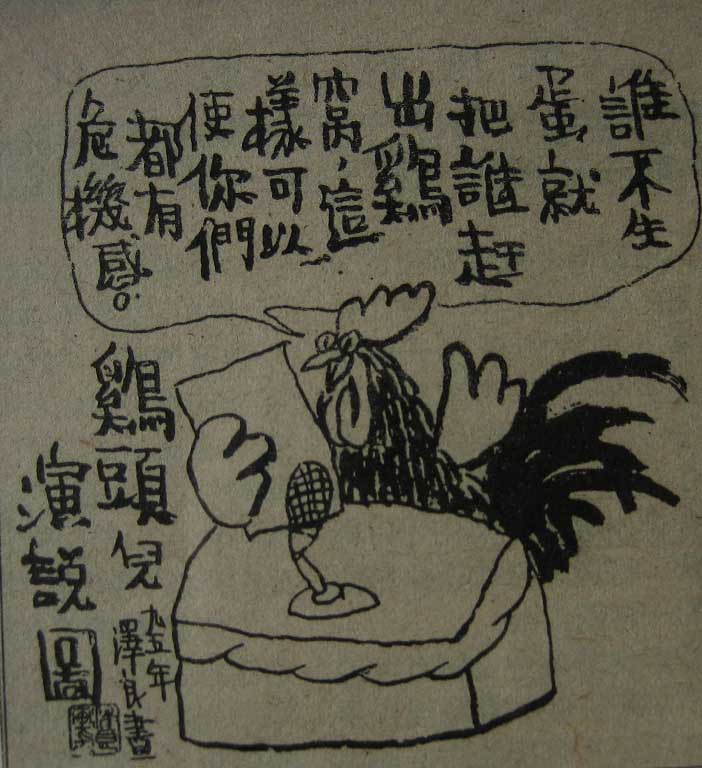 誰不生
蛋，就
把誰赶
出鷄
窩，這
樣可以
使你們
都有
危機感。
鷄頭兒
演說圖
九五年
澤良畫